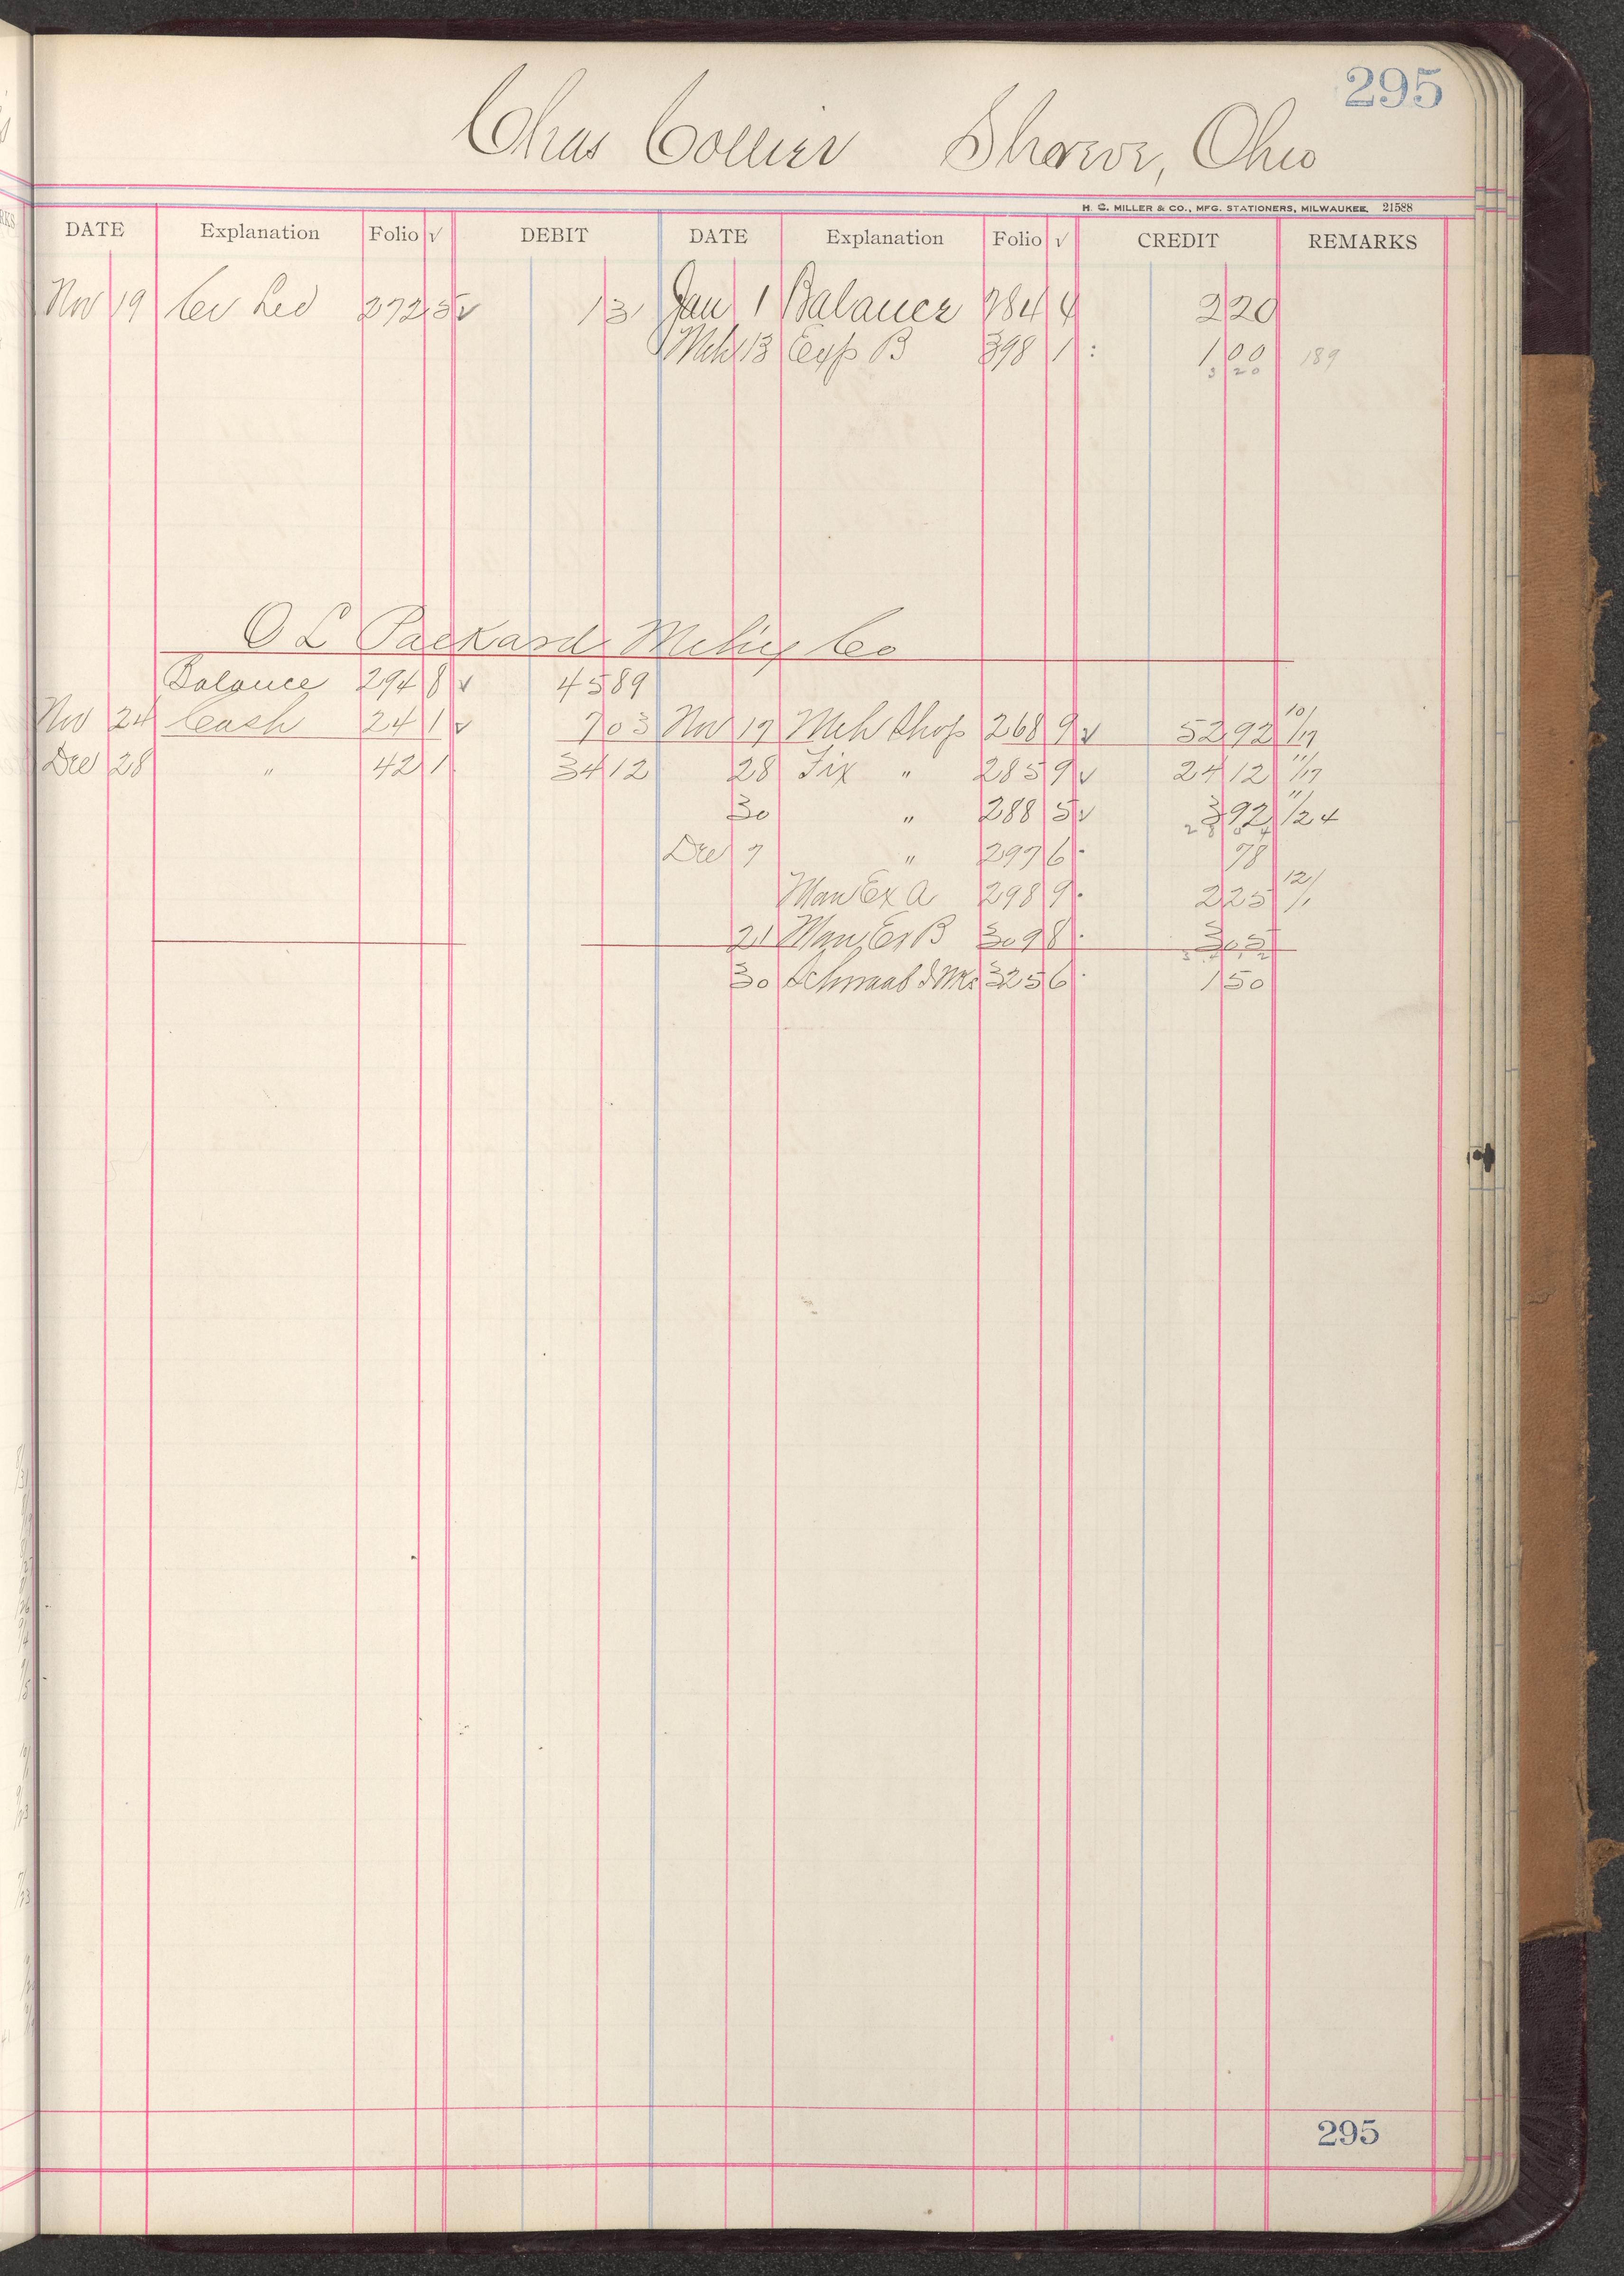 295
Chas Collier Shreve, Ohio
H. C. MILLER & CO., MFG. STATIONERS, MILWAUKEE. 21588
DATE Explanation Folio √ DEBIT DATE Explanation Folio √ CREDIT REMARKS
Nov 19 Cr Led 272 5 √ 13 Jan 1 Balance 284 4 2 20
Mch 13 Exp B 398 1 : 1 00 189
3 20
O L Packard Mchy Co
Balance 294 8 √ 45 89
Nov 24 Cash 24 1 √ 7 03 Nov 17 Mch Shop 268 9 √ 52 92 10/17
Dec 28 " 42 1 34 12 28 Fix " 285 9 √ 24 12 11/17
30 " 288 5 √ 3 92 11/24
28 04
Dec 7 " 297 6 78
Man Ex A 298 9 2 25 12/1
21 Man Ex B 309 8 3 05
30 325 6 1 50
295